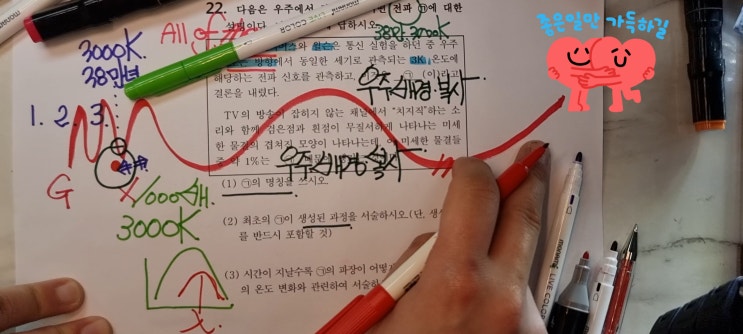 22. 다음은 우주에서 전파 ㉠에 대한
설명이다. 답하시오.
All
38만, 3000K
3000K
38만년
좋은일만 가득하길
윌슨은 통신 실험을 하던 중 우주
방향에서 동일한 세기로 관측되는 3K 온도에
해당하는 전파 신호를 관측하고, ㉠ (이)라고
결론을 내렸다.
우주배경복사
1. 2. 3.
TV의 방송이 잡히지 않는 채널에서 “치지직”하는 소
리와 함께 검은점과 흰점이 무질서하게 나타나는 미세
한 물결의 겹쳐진 모양이 나타나는데, 이 미세한 물결들
중 약 1%는
우주배경복사
G
(1) ㉠의 명칭을 쓰시오.
X/000배
3000K
(2) 최초의 ㉠이 생성된 과정을 서술하시오.(단,
를 반드시 포함할 것)
(3) 시간이 지날수록 ㉠의 파장이
의 온도 변화와 관련하여